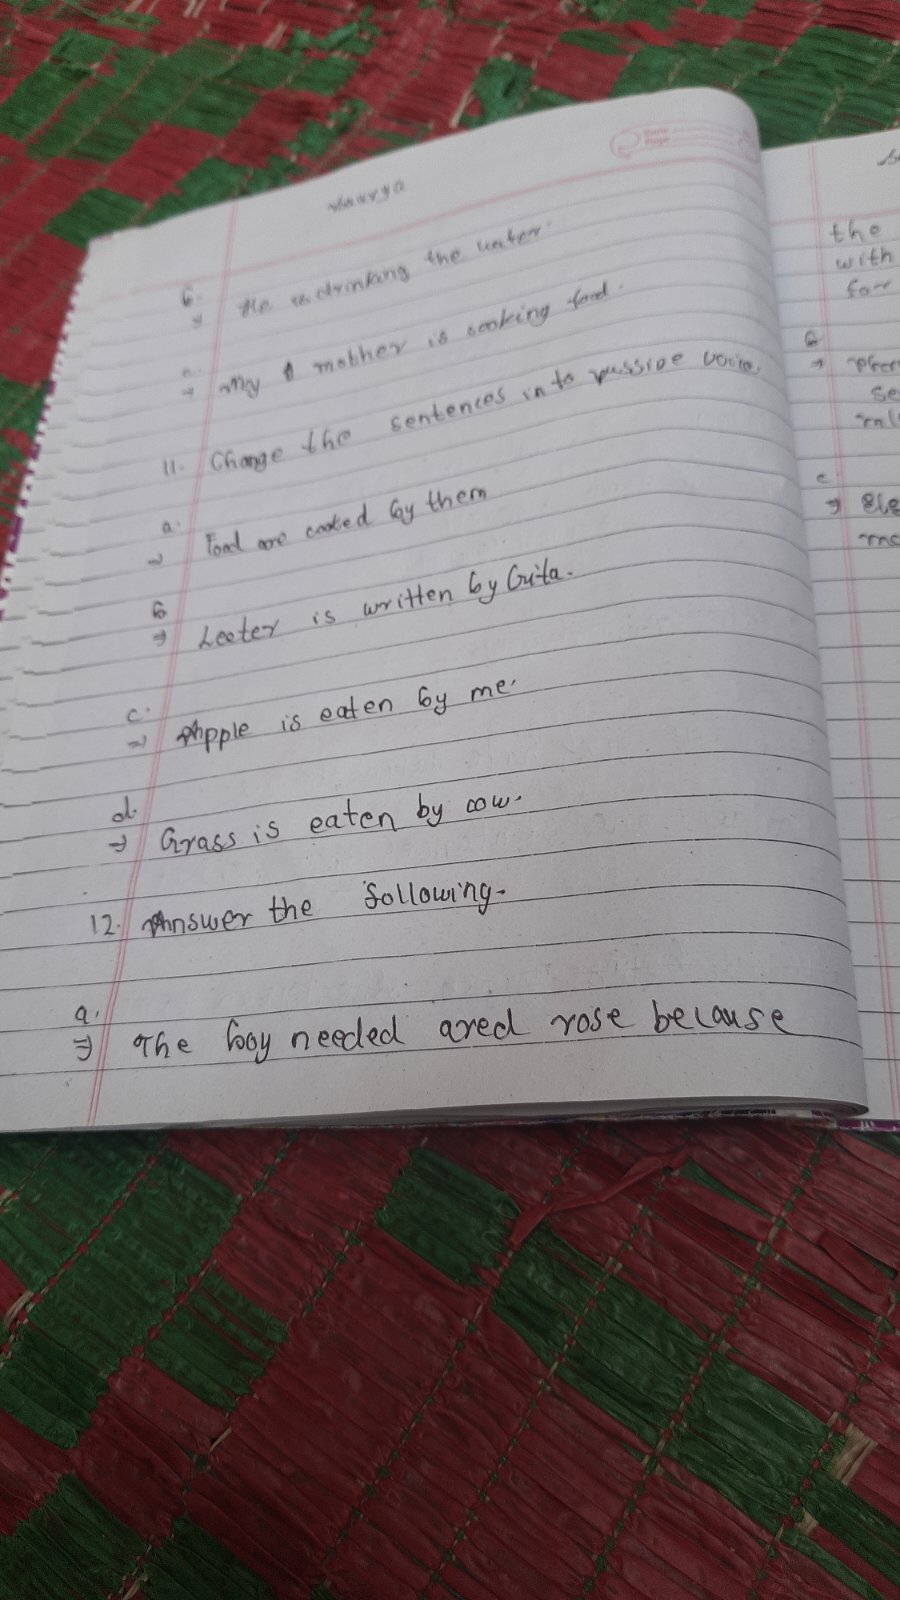 Maurya
b.
⇒ He is drinking the water.
⇒ My mother is cooking food.
11. Change the sentences into passive voice.
a.
⇒ Food are cooked by them
b
⇒ Leeter is written by Gita.
c.
⇒ Apple is eaten by me.
d.
⇒ Grass is eaten by cow.
12. Answer the following.
a.
⇒ The boy needed ared rose because
the
with
for
B
⇒
se
c
⇒ Ele